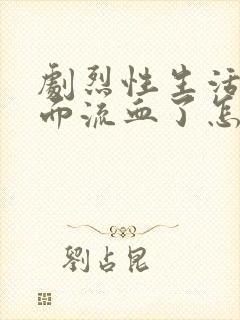 劇烈性生活
而流血了怎
劉占昆